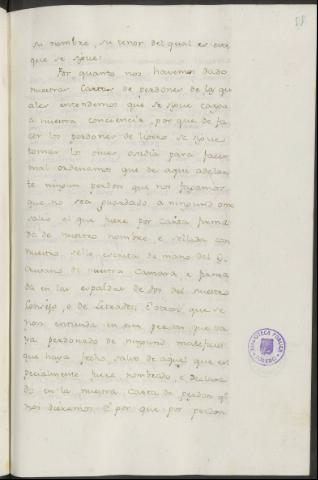 58
su nombre, su tenor del qual es este
que se sigue:
Por quanto nos havemos dado
nuestras Cartas de perdones de las qu
ales entendemos que se sigue carga
a nuestra conciencia, por que de fa
cer los perdones de ligero se sigue
tomar los omes osadia para facer
mal ordenamos que de aqui adelan
te ningun perdon que nos fagamos
que no sea guardado a ninguno ome
salvo el que fuere por Carta firma
da de nuestro nombre e sellada con
nuestro sello escrita de mano del Es
crivano de nuestra Camara e firma
da en las espaldas de dos del nuestro
Consejo, o de Letrados. Otrosi que se
non entienda en este perdon que va
ya perdonado de ninguno maleficio
que haya fecho, salvo de aquel que es
pecialmente fuere nombrado, e declara
do en la nuestra Carta de perdon qe
nos dieremos. E por que por perdon
BIBLIOTECA PUBLICA
TOLEDO